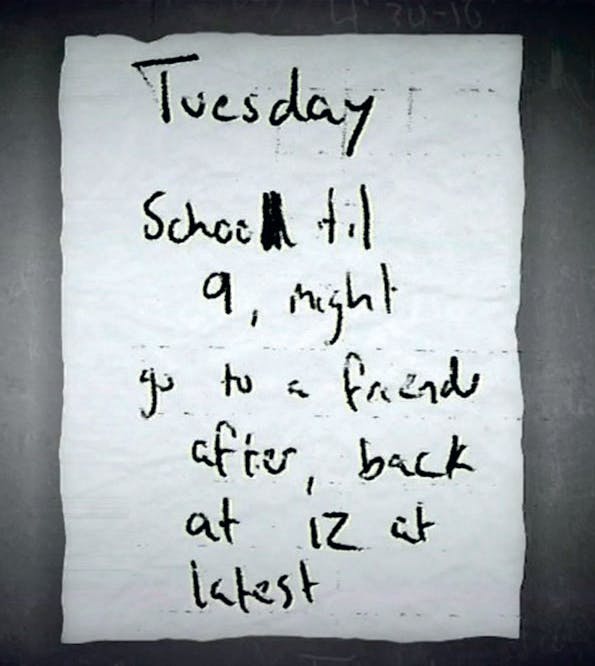 Tuesday
School til
9, might
go to a friends
after, back
at 12 at
latest